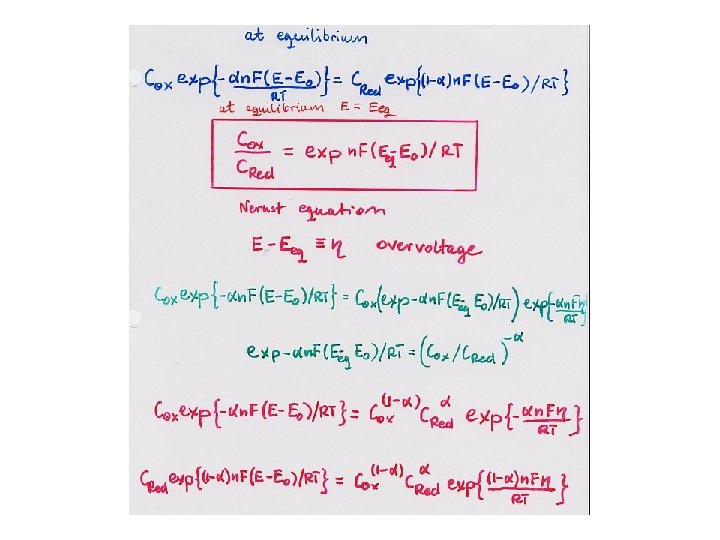 at equilibrium
Cox exp{-αnF(E-E0)/RT} = CRed exp{(1-α)nF(E-E0)/RT}
at equilibrium E = Eeq
Cox/CRed = exp nF(Eeq-E0)/RT
Nernst equation
E-Eeq ≡ η overvoltage
Cox exp{-αnF(E-E0)/RT} = Cox(exp-αnF(Eeq-E0)/RT) exp{-αnFη/RT
exp-αnF(Eeq-E0)/RT = (Cox/CRed)^-α
Cox exp{-αnF(E-E0)/RT} = Cox^(1-α) CRed^α exp{-αnFη/RT}
CRed exp{(1-α)nF(E-E0)/RT} = Cox^(1-α) CRed^α exp{(1-α)nFη/RT}